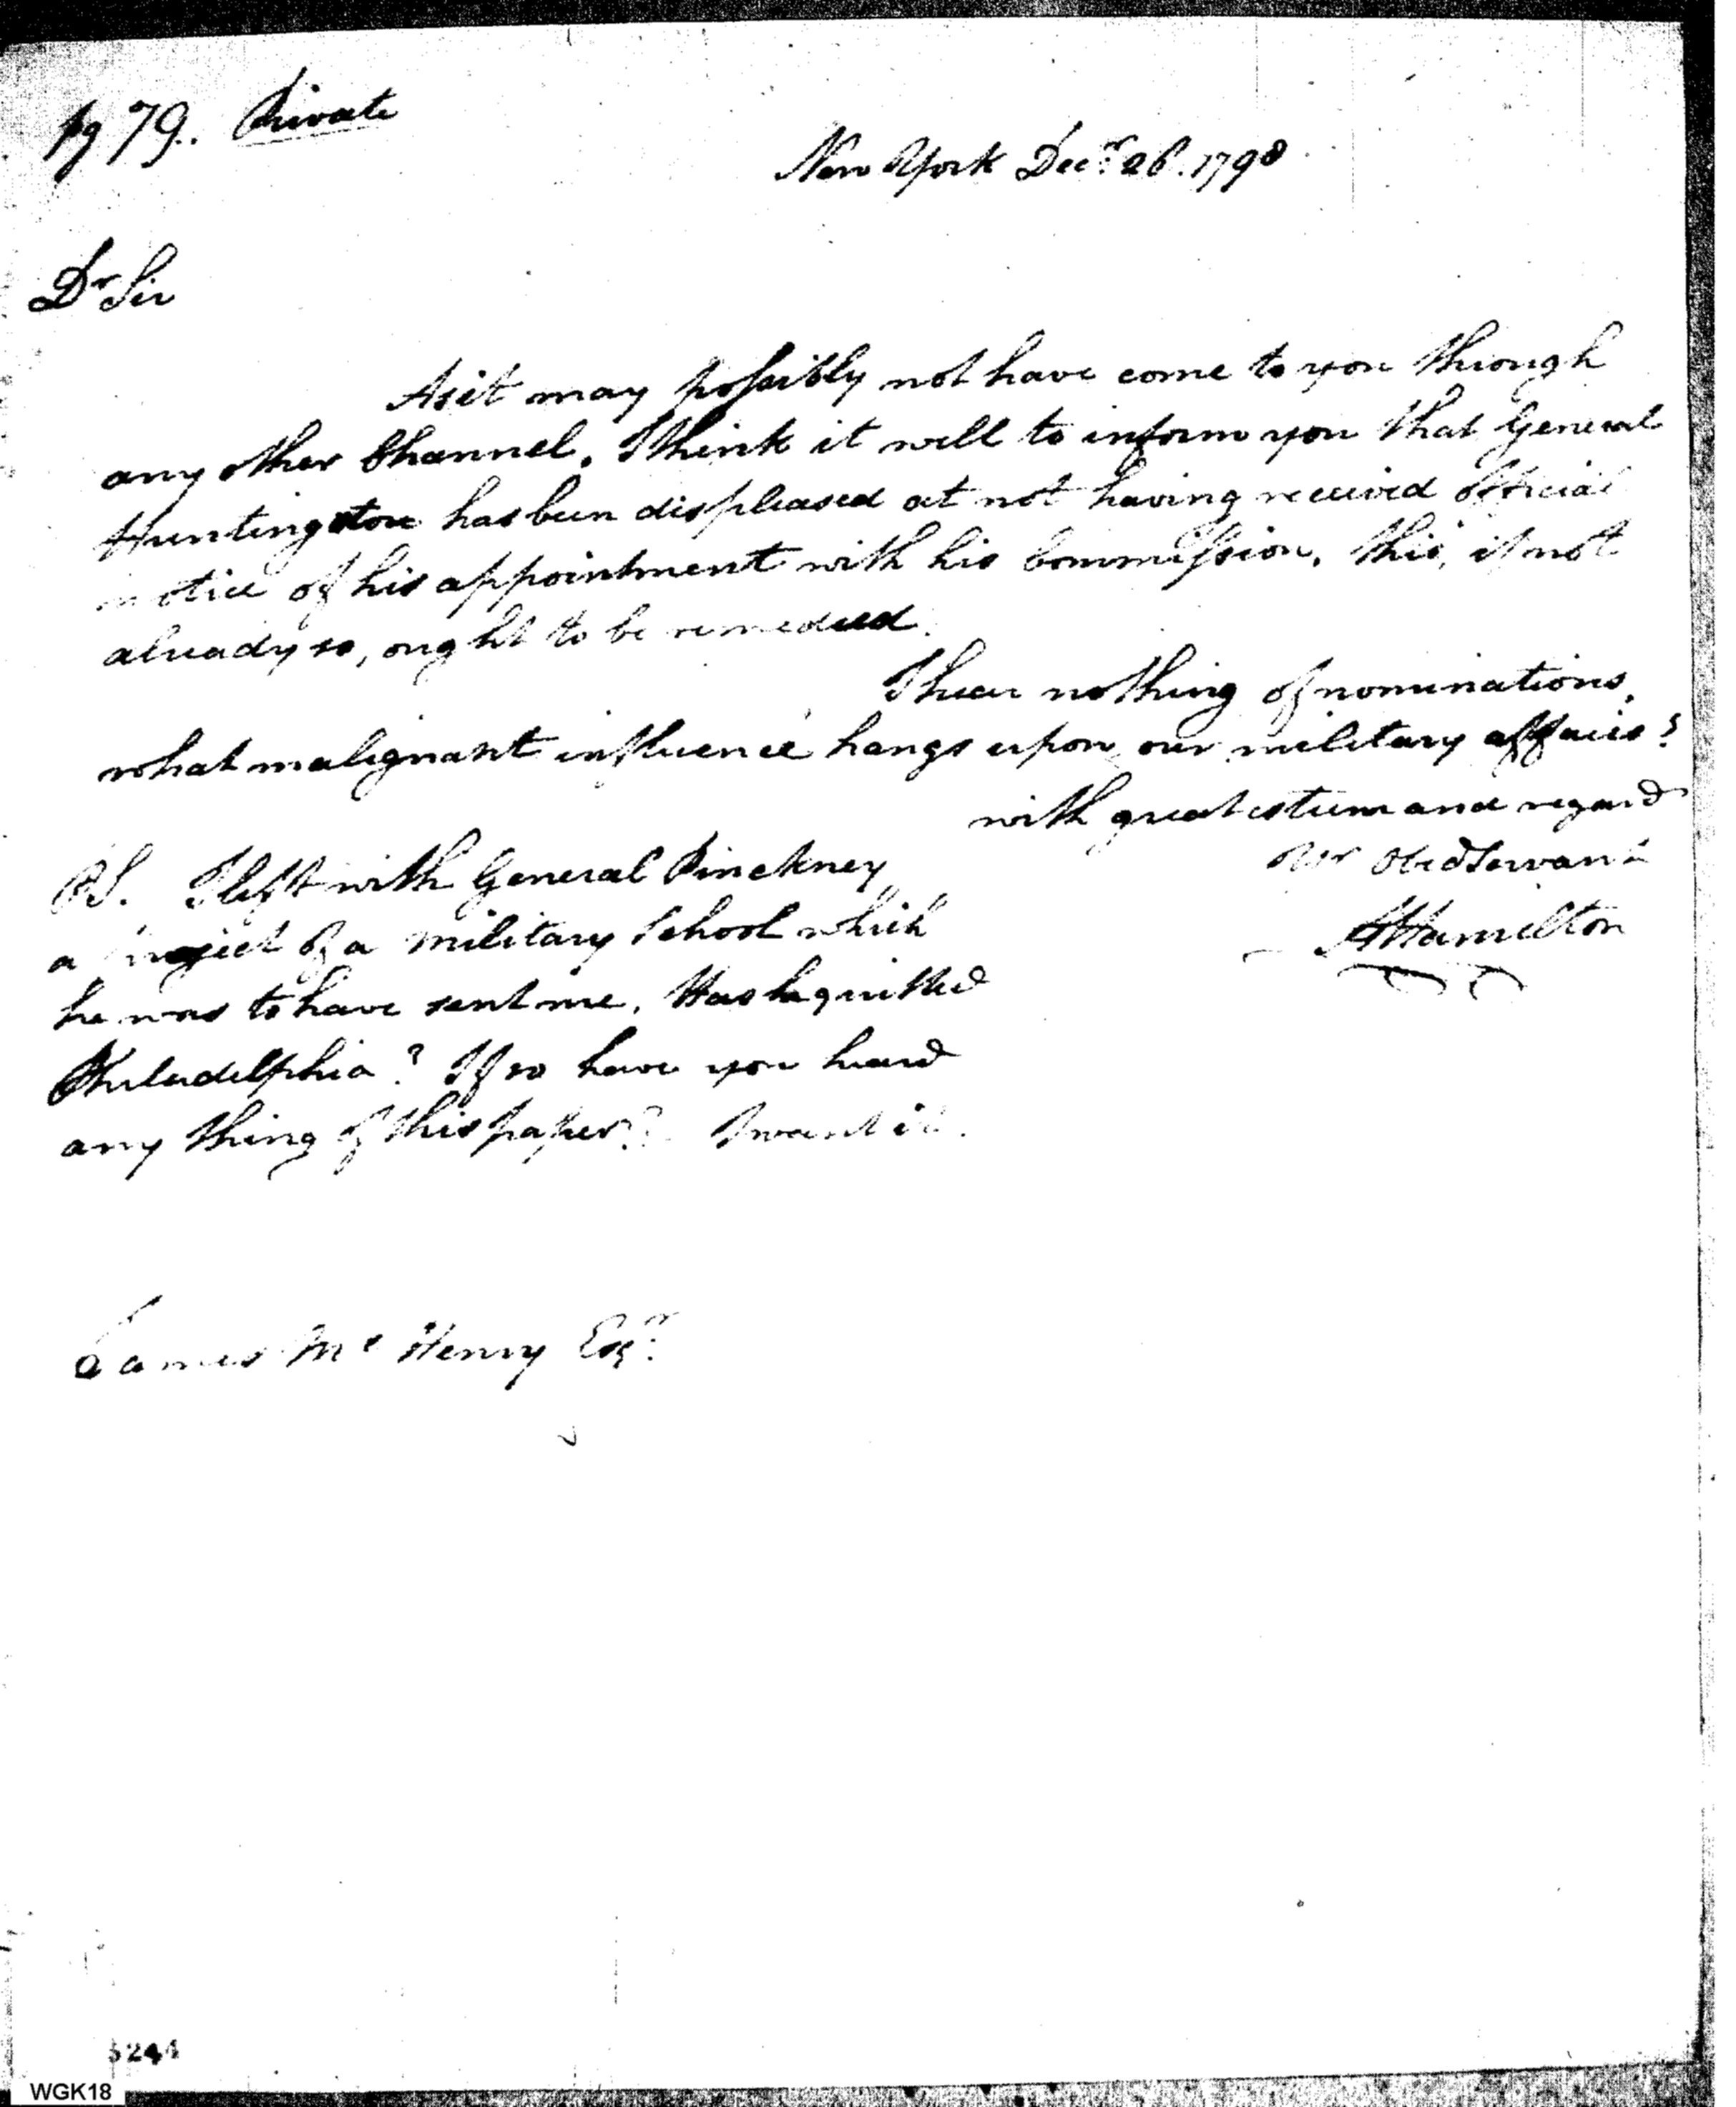 pg 79. Private
New York Decr. 26. 1798
Dr Sir
As it may possibly not have come to you through
any other Channel, I think it well to inform you that General
Huntington has been displeased at not having received official
notice of his appointment with his Commission. This, if not
already so, ought to be remedied.
I hear nothing of nominations.
What malignant influence hangs upon our military affairs?
with great esteem and regard
Yr Obed Servant
A Hamilton
PS. I left with General Pinckney
a project of a military School which
he was to have sent me. Has he quitted
Philadelphia? If so have you heard
any thing of this paper? I want it.
James Mc Henry Esqr.
WGK18